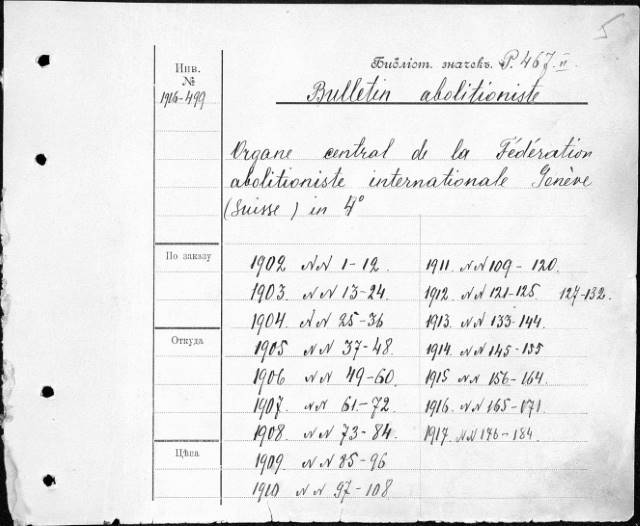 5
Библіот. значекъ. P. 467 II.
Инв.
№
1916-499
Bulletin abolitioniste
Organe central de la Fédération
abolitioniste internationale Genève
(Suisse) in 4°
По заказу
Откуда
Цѣна
1902 NN 1-12.
1903. NN 13-24.
1904. NN 25-36
1905 NN 37-48.
1906 NN 49-60.
1907. NN 61-72
1908. NN 73-84.
1909. NN 85-96
1910 NN 97-108
1911. NN 109-120.
1912. NN 121-125. 127-132.
1913. NN 133-144.
1914. NN 145-155
1915 NN 156-164.
1916. NN 165-171
1917. NN 176-184.